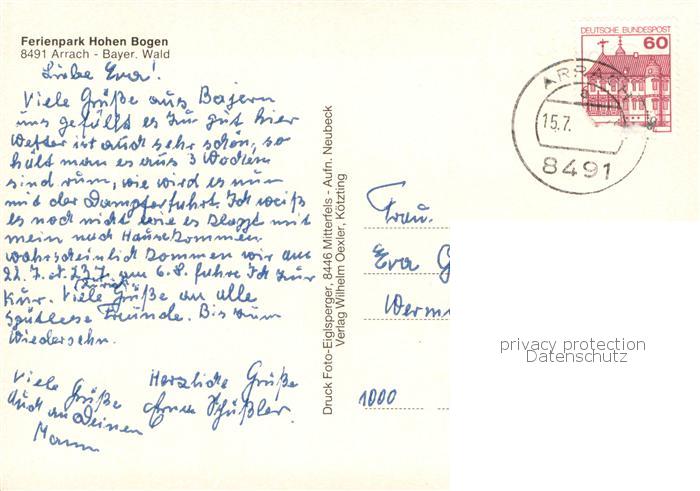 Ferienpark Hohen Bogen
8491 Arrach - Bayer. Wald
Liebe Eva!
Viele Grüße aus Bayern
uns gefällt es sur gut hier
Wetter ist auch sehr schön, so
hält man es aus 3 Wochen
sind rum, wie wird es nun
mit der Dampferfahrt. Ich weiß
es noch nicht wie es klappt mit
mein nach Hausekommen
wahrscheinlich kommen wir am
22.7. o. 23.7. am 6.8. fahre Ich zur
(zurück)
Kur. Viele Grüße an alle
Spätlese Freunde. Bis zum
Wiedersehn.
Viele Grüße
auch an Deinen
Mann
Herzliche Grüße
Schüßler.
Druck Foto-Eiglsperger, 8446 Mitterfels - Aufn. Neubeck
Verlag Wilhelm Oexler, Kötzting
DEUTSCHE BUNDESPOST
60
ARRACH
a
15.7.
8491
Frau.
Eva G
Werm
1000
privacy protection
Datenschutz